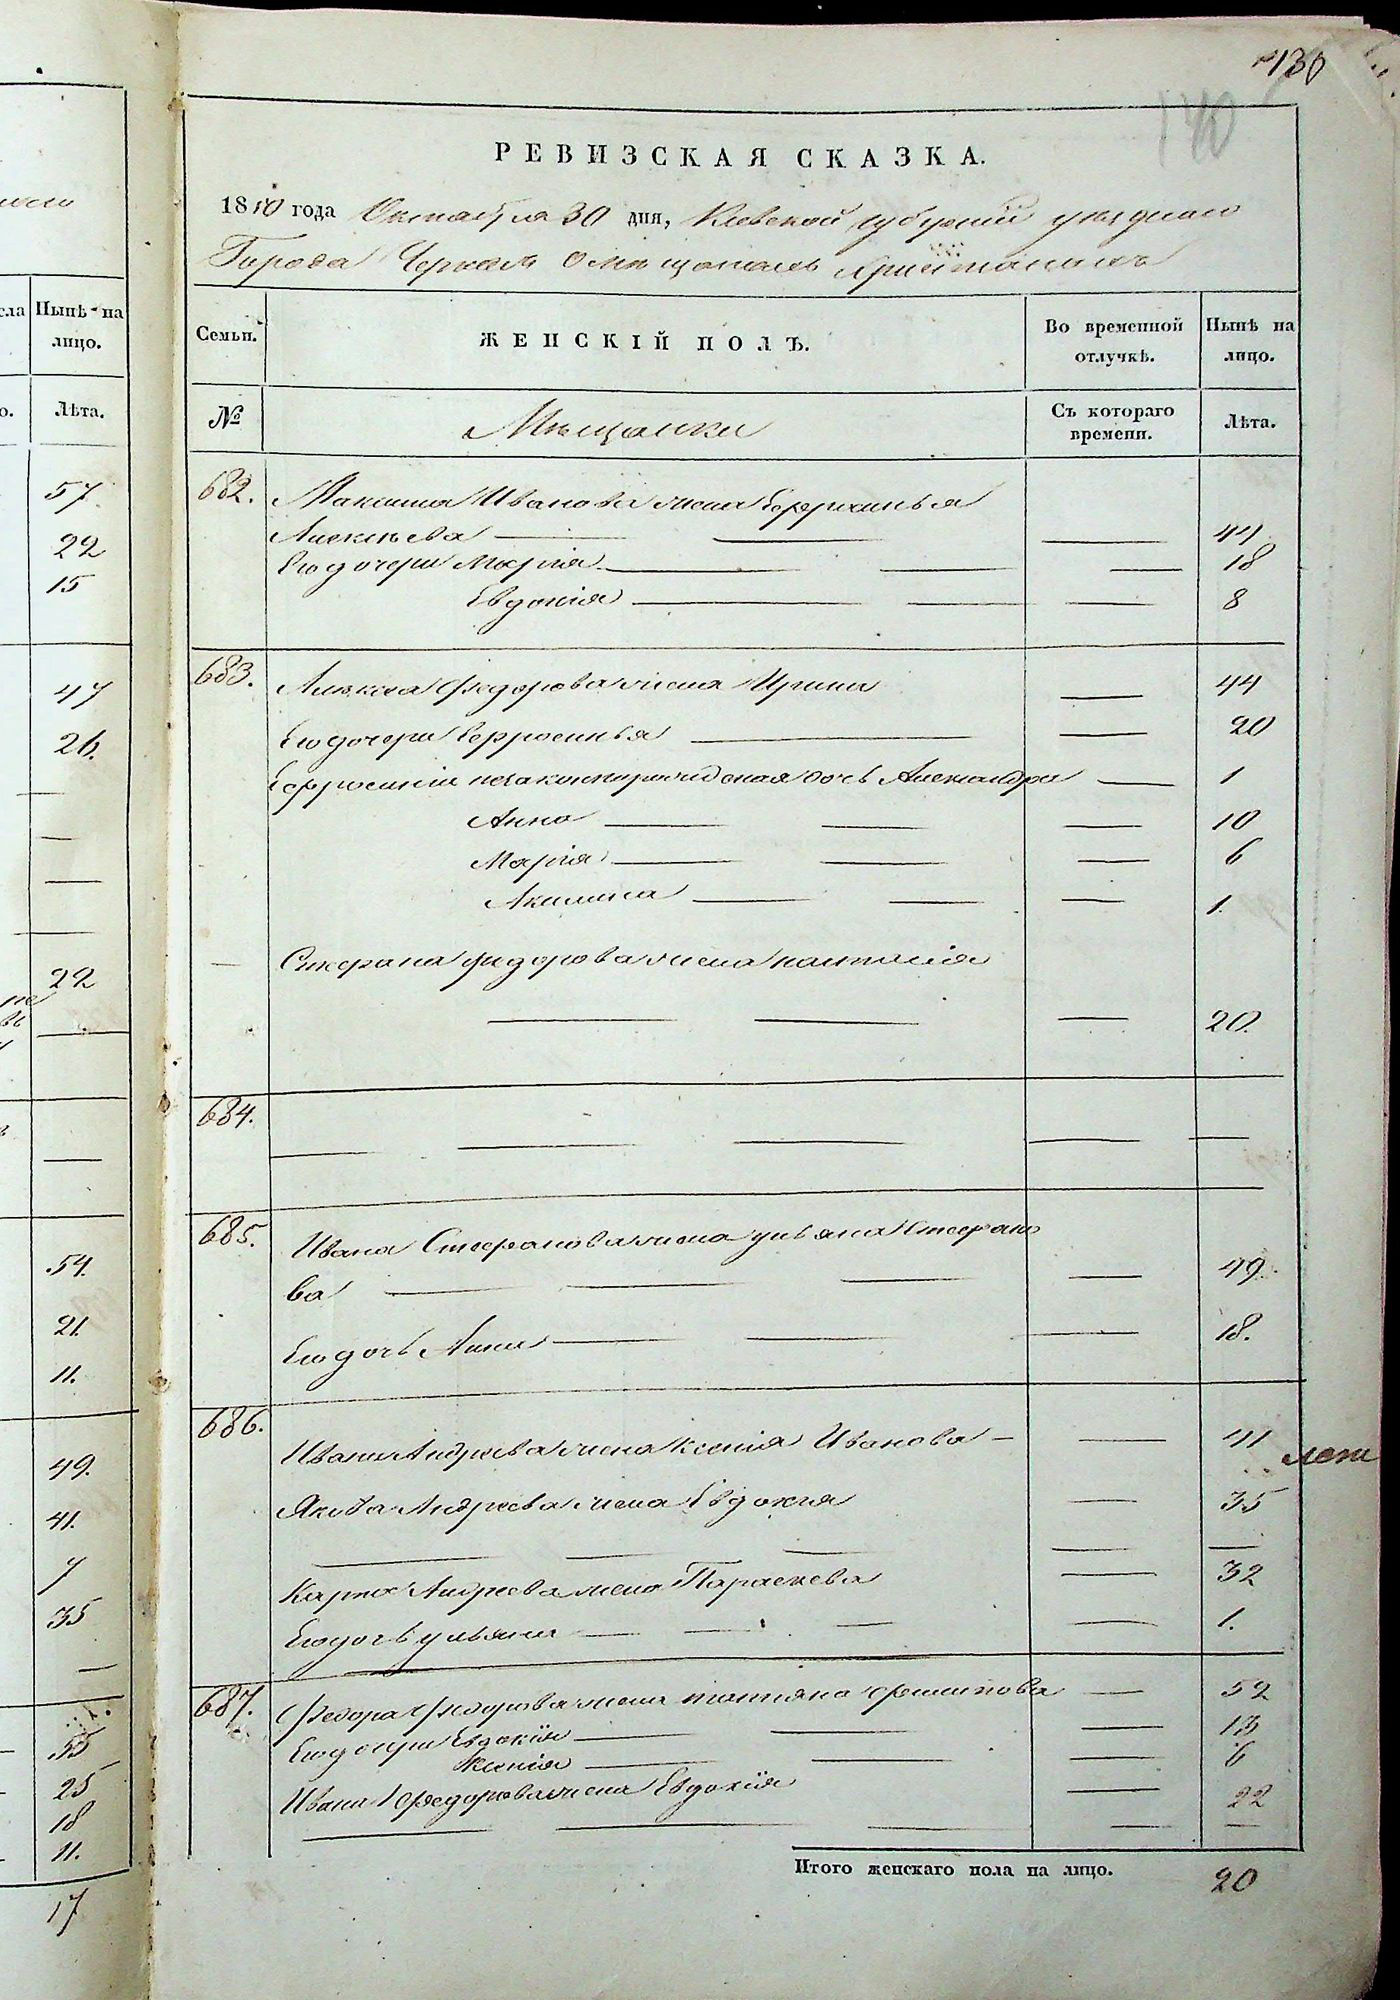 130
140
РЕВИЗСКАЯ СКАЗКА.
1850 года Октября 30 дня, Киевской губернии уезднаго
Города Черкасъ о мѣщанахъ христианахъ
Семьи.
ЖЕНСКІЙ ПОЛЪ.
Во временной отлучкѣ.
Нынѣ на лицо.
№
Мѣщанки
Съ котораго времени.
Лѣта.
682. Максима Иванова жена Ефросинья
Алексѣева — — — 44
Его дочери Марія — — — 18
Евдокія — — — 8
683. Алексея Федорова жена Ирина — 44
Его дочери Ефросинья — — 20
Ефросиніи незаконнорожденная дочь Александра — 1
Анна — — — 10
Марія — — — 6
Акилина — — — 1.
— Стефана Федорова жена Наталія
— — — 20.
684. — — — — —
685. Ивана Стефанова жена Ульяна Стефано
ва — — — — 49.
Его дочь Анна — — — 18.
686. Ивана Андреева жена Ксенія Иванова — — 41
Якова Андреева жена Евдокия — 35
— — — — —
Карпа Андреева жена Параскева — 32
Его дочь Ульяна — — — — 1.
687. Федора Федорова жена Татьяна — 52
Его дочери Евдокія — — — 13
Ксенія — — — 6
Ивана Федорова жена Евдохія — 22
— — — — —
Итого женскаго пола на лицо. 20
Нынѣ на лицо.
Лѣта.
57
22
15
47
26.
—
—
—
22
—
—
54.
21.
11.
49.
41.
7
35
—
55
25
18
11.
17